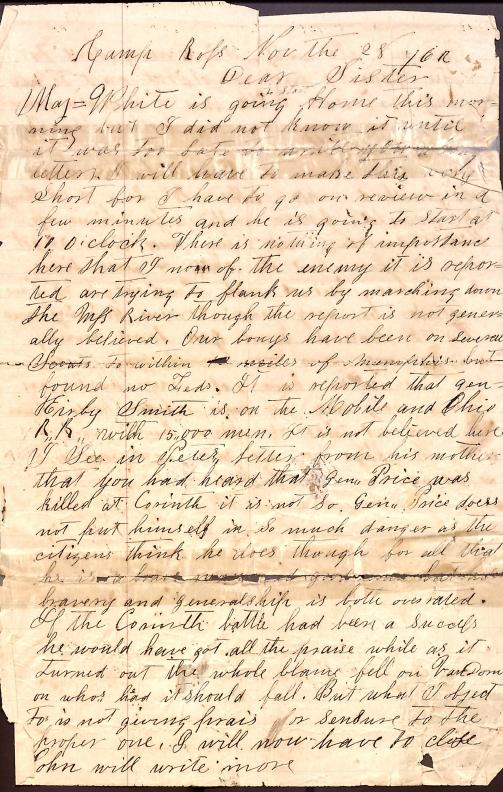 Kamp Ross Nov the 28 /62
Dear Sister
Maj = White is going Home this mor-
ning but I did not know it until
it was too late to write
letter. I will have to make this very
Short for I have to go on review in a
few minutes and he is going to start at
10, O'clock. There is nothing of importance
here that I now of. the enemy it is repor-
ted are trying to flank us by marching down
the Miss River though the report is not gener-
ally believed. Our bouys have been on several
Scouts to within miles of Memphis but
found no Feds. It is reported that gen
Kirby Smith is on the Mobile and Ohio
R,,R,, with 15,000 men. It is not believed here
I See in letter from his mother
that you had heard that Genn Price was
killed at Corinth it is not so. Genn Price does
not put himself in so much danger as the
citizens think he does though for all that
he is a
bravery and generalship is both overrated.
If the Corinth battle had been a success
he would have got all the praise while as it
turned out the whole blame fell on Vandorn
on whos had it should fall. But what I object
to is not giving prais or sensure to the
proper one. I will now have to close
John will write more